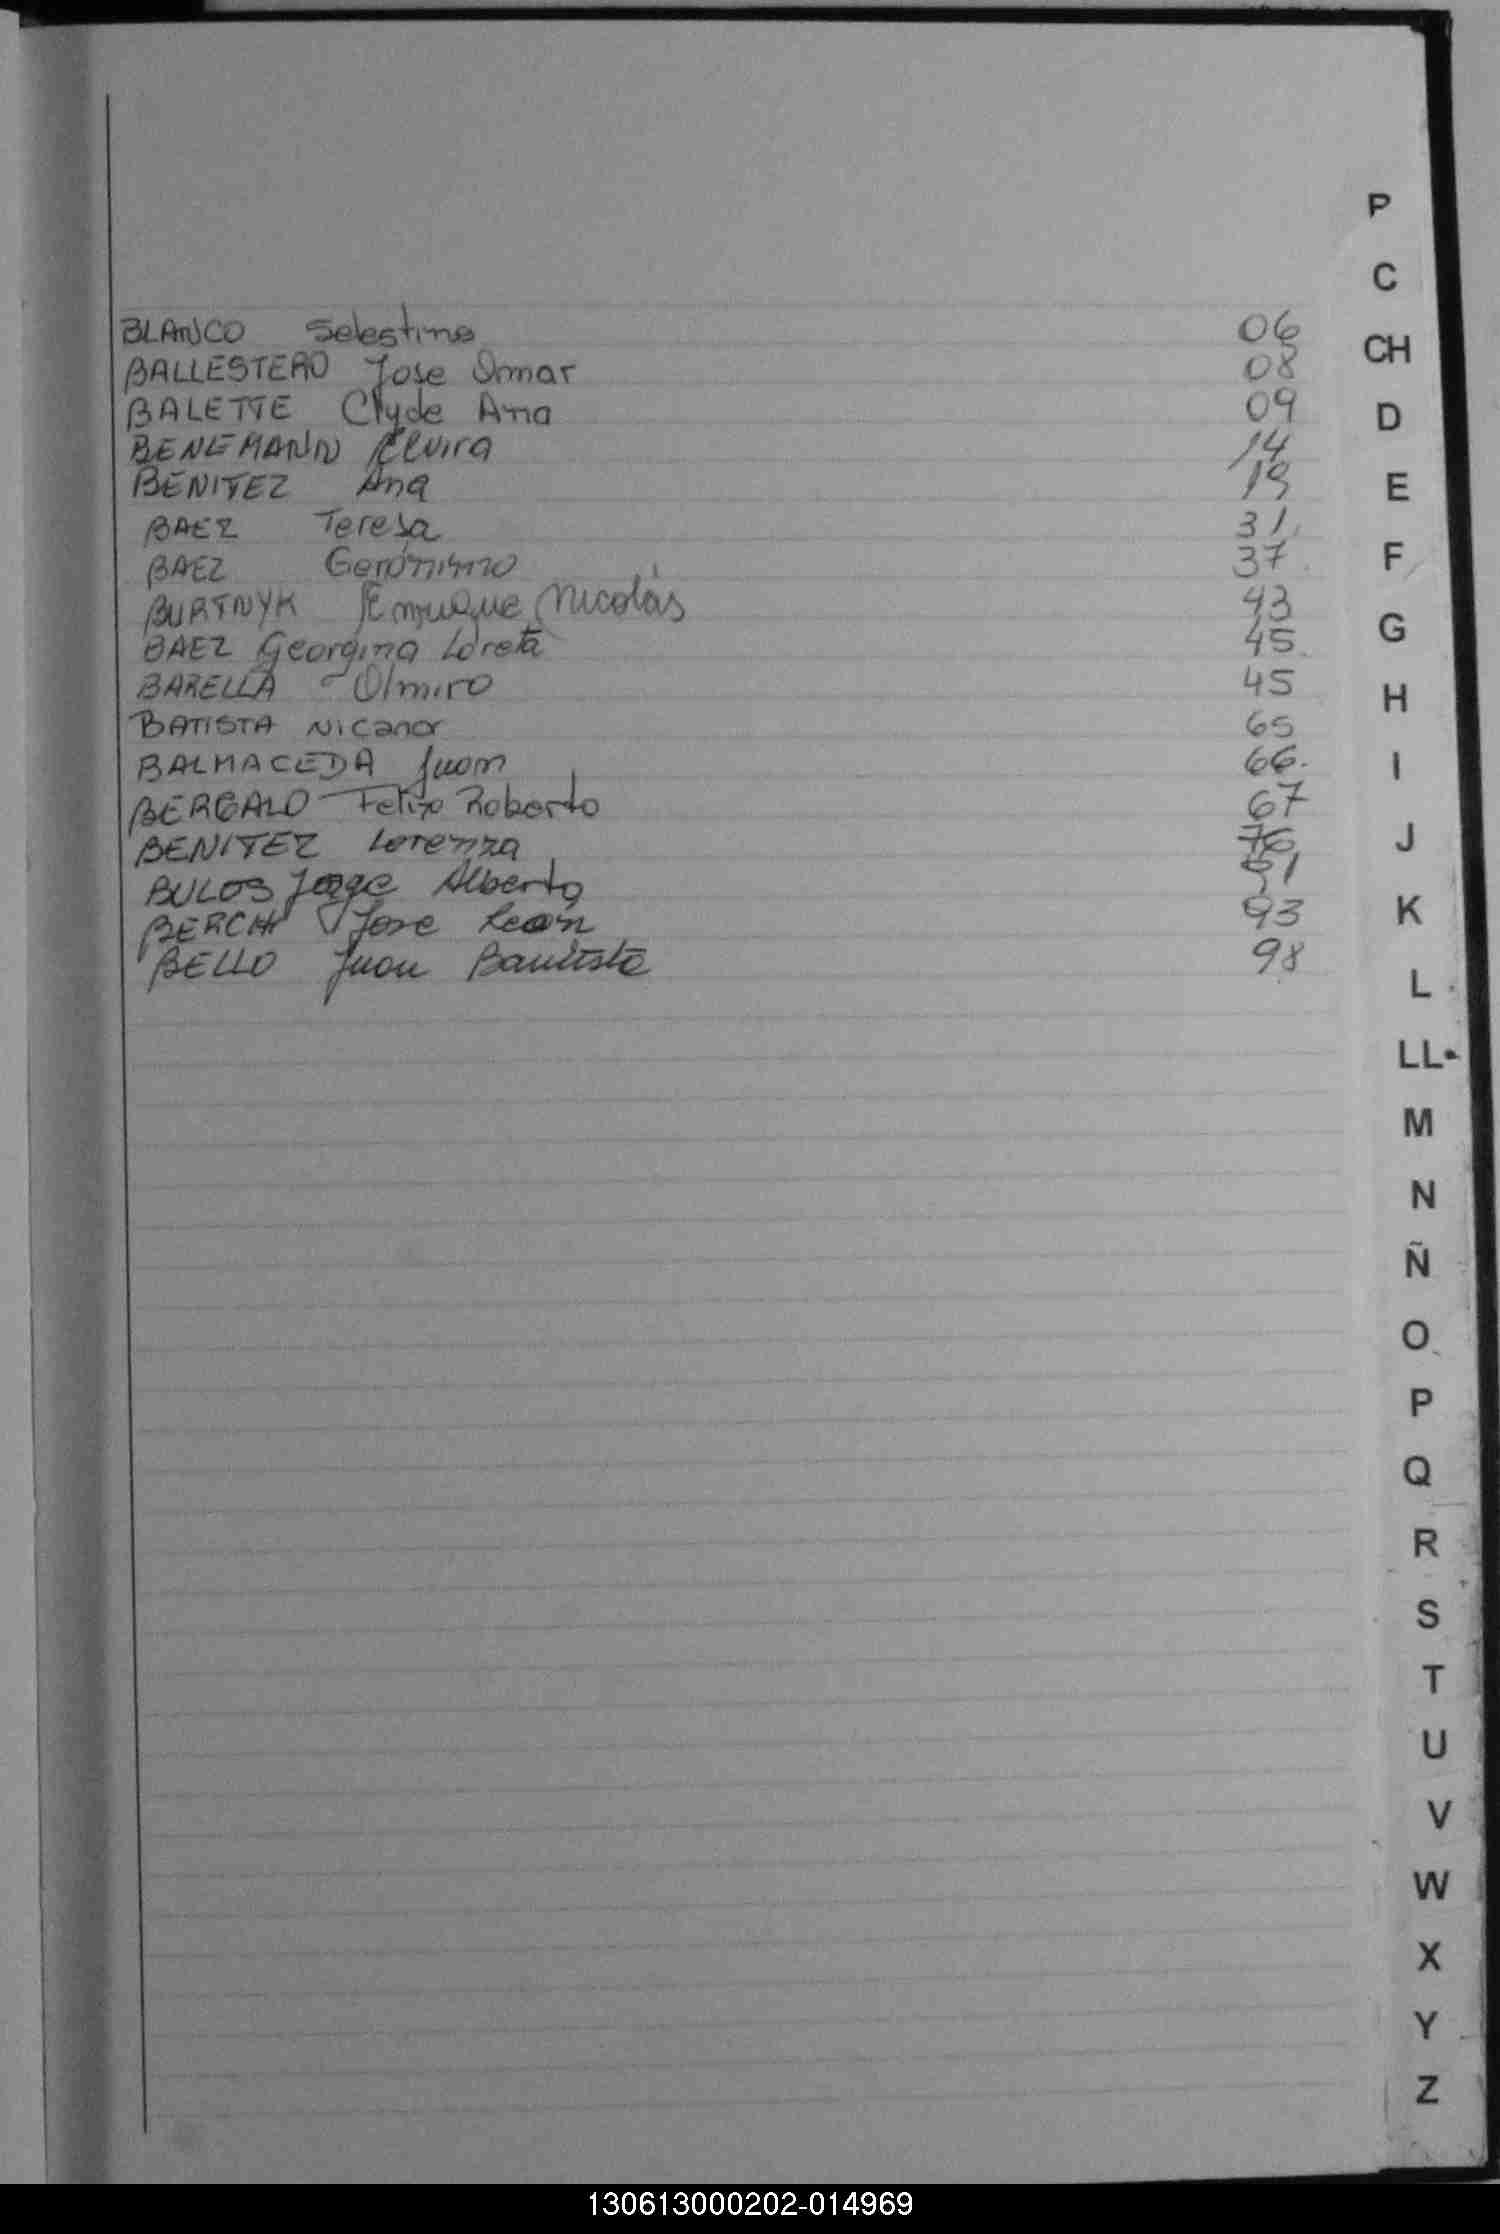 BLANCO Selestino 06
BALLESTERO Jose Omar 08
BALETTE Clyde Ana 09
BENEMANN Elvira 14
BENITEZ Ana 19
BAEZ Teresa 31
BAEZ Gerónimo 37
BURTNYK Enrique Nicolás 43
BAEZ Georgina Loreta 45
BARELLA Olmiro 45
BATISTA Nicanor 65
BALMACEDA Juan 66.
BERGALO Felix Roberto 67
BENITEZ Lorenza 76
BULOS Jorge Alberto
BERCHI Jose León 93
BELLO Juan Bautista 98
P
C
CH
D
E
F
G
H
I
J
K
L
LL
M
N
Ñ
O
P
Q
R
S
T
U
V
W
X
Y
Z
130613000202-014969